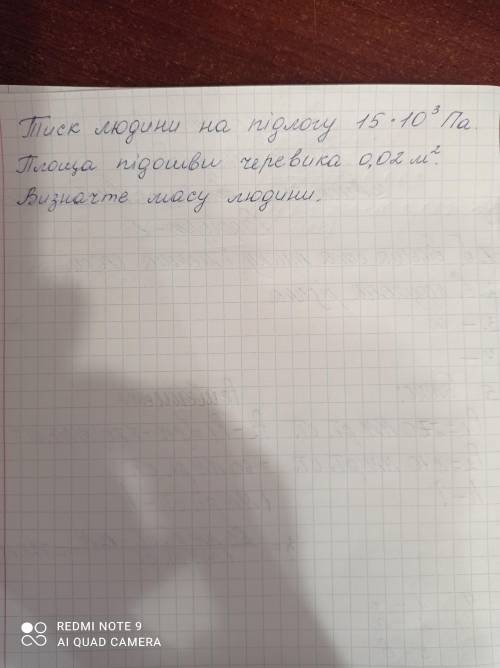 Тиск людини на підлогу 15·10³ Па.
Площа підошви черевика 0,02 м².
Визначте масу людини.
REDMI NOTE 9
AI QUAD CAMERA